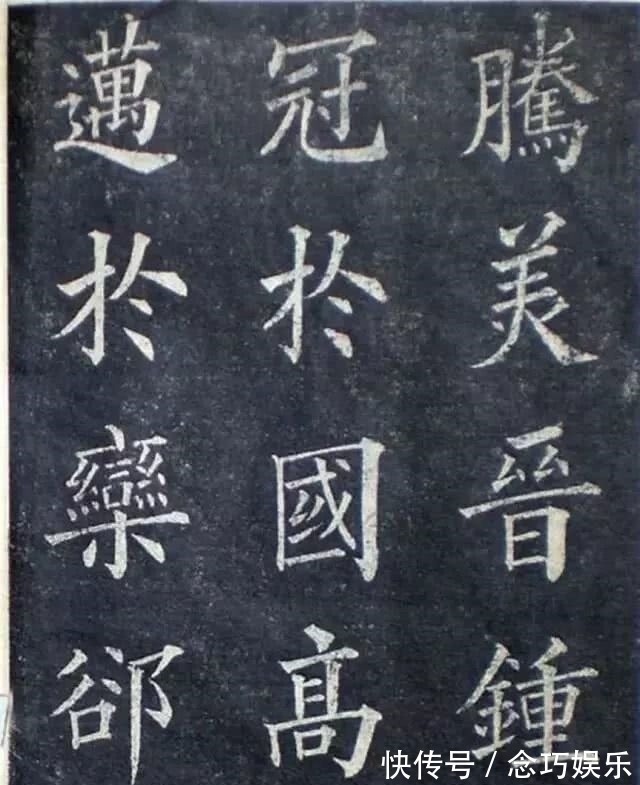 騰美晉鍾
冠於國高
邁於欒郤
快传号/念巧娱乐